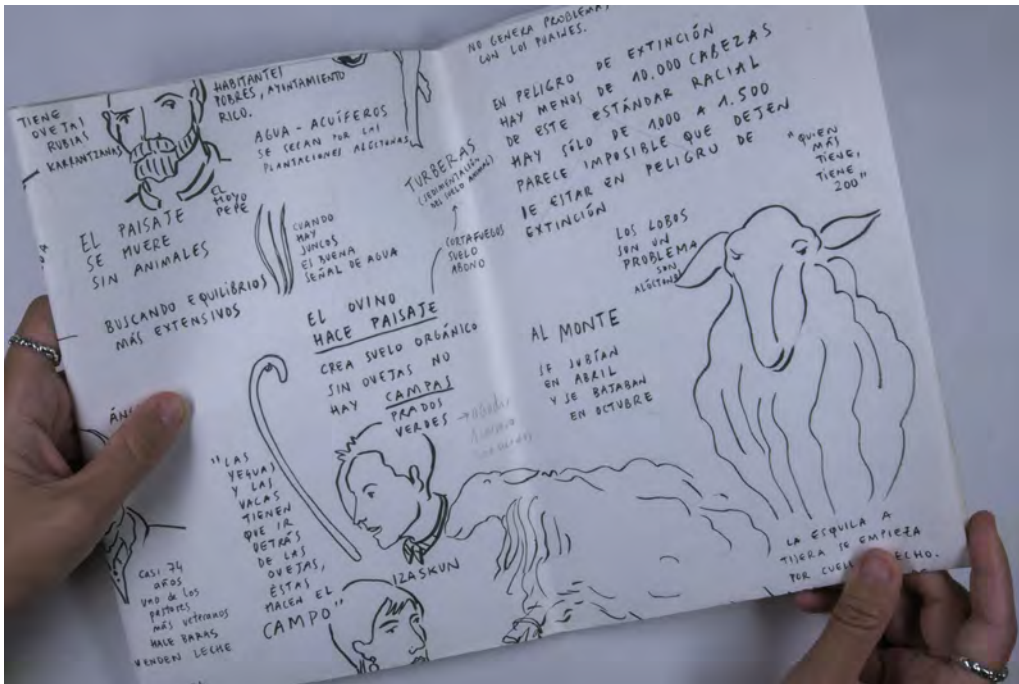 TIENE
OVEJAS
RUBIAS
KARRANTZANAS
HABITANTES
POBRES, AYUNTAMIENTO
RICO.
AGUA - ACUÍFEROS
SE SECAN POR LAS
PLANTACIONES ALÓCTONAS
EL
MOYO
PEPE
EL PAISAJE
SE MUERE
SIN ANIMALES
CUANDO
HAY
JUNCOS
ES BUENA
SEÑAL DE AGUA
BUSCANDO EQUILIBRIOS
MÁS EXTENSIVOS
TURBERAS
(SEDIMENTACIÓN
DEL SUELO ANIMAL)
CORTAFUEGOS
SUELO
ABONO
EL OVINO
HACE PAISAJE
CREA SUELO ORGÁNICO
SIN OVEJAS NO
HAY CAMPAS
PRADOS
VERDES
"LAS
YEGUAS
Y LAS
VACAS
TIENEN
QUE IR
DETRÁS
DE LAS
OVEJAS,
ÉSTAS
HACEN EL
CAMPO"
IZASKUN
CASI 74
años
uno de los
pastores
más veteranos
HACE BARAS
VENDEN LECHE
NO GENERA PROBLEMAS
CON LOS PURINES.
EN PELIGRO DE EXTINCIÓN
HAY MENOS DE 10.000 CABEZAS
DE ESTE ESTÁNDAR RACIAL
HAY SÓLO DE 1.000 A 1.500
PARECE IMPOSIBLE QUE DEJEN
DE ESTAR EN PELIGRO DE
EXTINCIÓN
"QUIEN
MÁS
TIENE,
TIENE
200"
LOS LOBOS
SON UN
PROBLEMA
SON
ALÓCTONOS
AL MONTE
SE SUBÍAN
EN ABRIL
Y SE BAJABAN
EN OCTUBRE
LA ESQUILA A
TIJERA SE EMPIEZA
POR